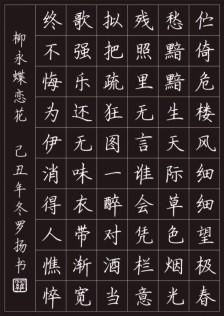 伫倚危楼风细细望极春
愁黯黯生天际草色烟光
残照里无言谁会凭栏意
拟把疏狂图一醉对酒当
歌强乐还无味衣带渐宽
终不悔为伊消得人憔悴
柳永蝶恋花 己丑年冬罗扬书